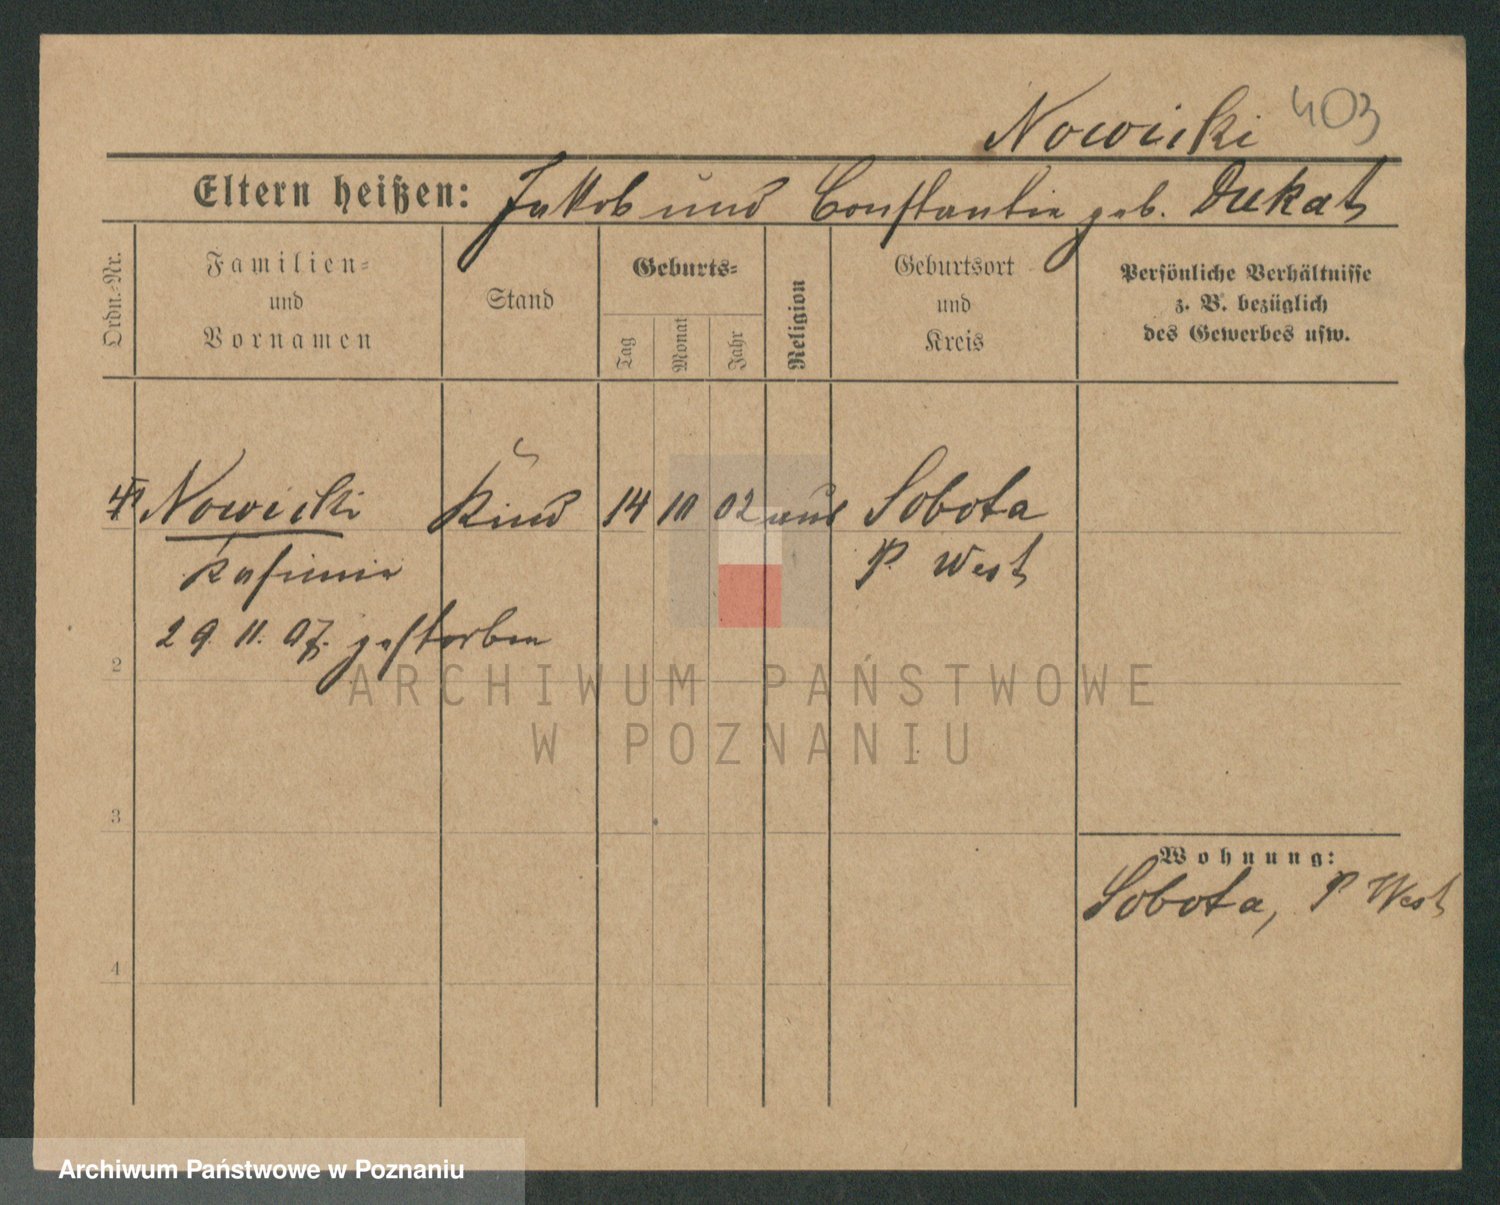 Nowicki 403
Eltern heißen: Jakob und Constantia geb. Dukat
Ordn.-Nr.
Familien-
und
Vornamen
Stand
Geburts-
Tag
Monat
Jahr
Religion
Geburtsort
und
Kreis
Persönliche Verhältnisse
z. B. bezüglich
des Gewerbes usw.
Nowicki Kind 14 10 02 aus Sobota
Kasimir P. West
29. 11. 07. gestorben
2
3
4
Wohnung:
Sobota, P West
ARCHIWUM PAŃSTWOWE
W POZNANIU
Archiwum Państwowe w Poznaniu